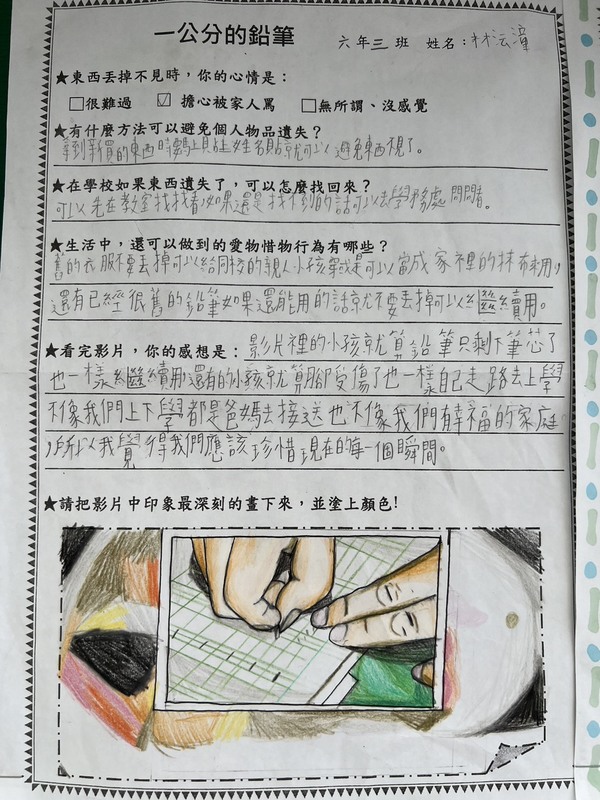 一公分的鉛筆
六年三班 姓名：林沄潼
★東西丟掉不見時，你的心情是：
□很難過 ☑ 擔心被家人罵 □無所謂、沒感覺
★有什麼方法可以避免個人物品遺失？
等到新買的東西時要馬上貼上姓名貼就可以避免東西不見了。
★在學校如果東西遺失了，可以怎麼找回來？
可以先在教室找找看如果還是找不到的話可以去學務處問問看。
★生活中，還可以做到的愛物惜物行為有哪些？
舊的衣服不要丟掉可以給同校的親人小孩穿或是可以當成家裡的抹布來用，
還有已經很舊的鉛筆如果還能用的話就不要丟掉可以繼續用。
★看完影片，你的感想是：影片裡的小孩就算鉛筆只剩下筆芯了
也一樣繼續用，還有的小孩就算腳受傷了也一樣自己走路去上學
不像我們上下學都是爸媽去接送也不像我們有幸福的家庭
，所以我覺得我們應該珍惜現在的每一個瞬間。
★請把影片中印象最深刻的畫下來，並塗上顏色!